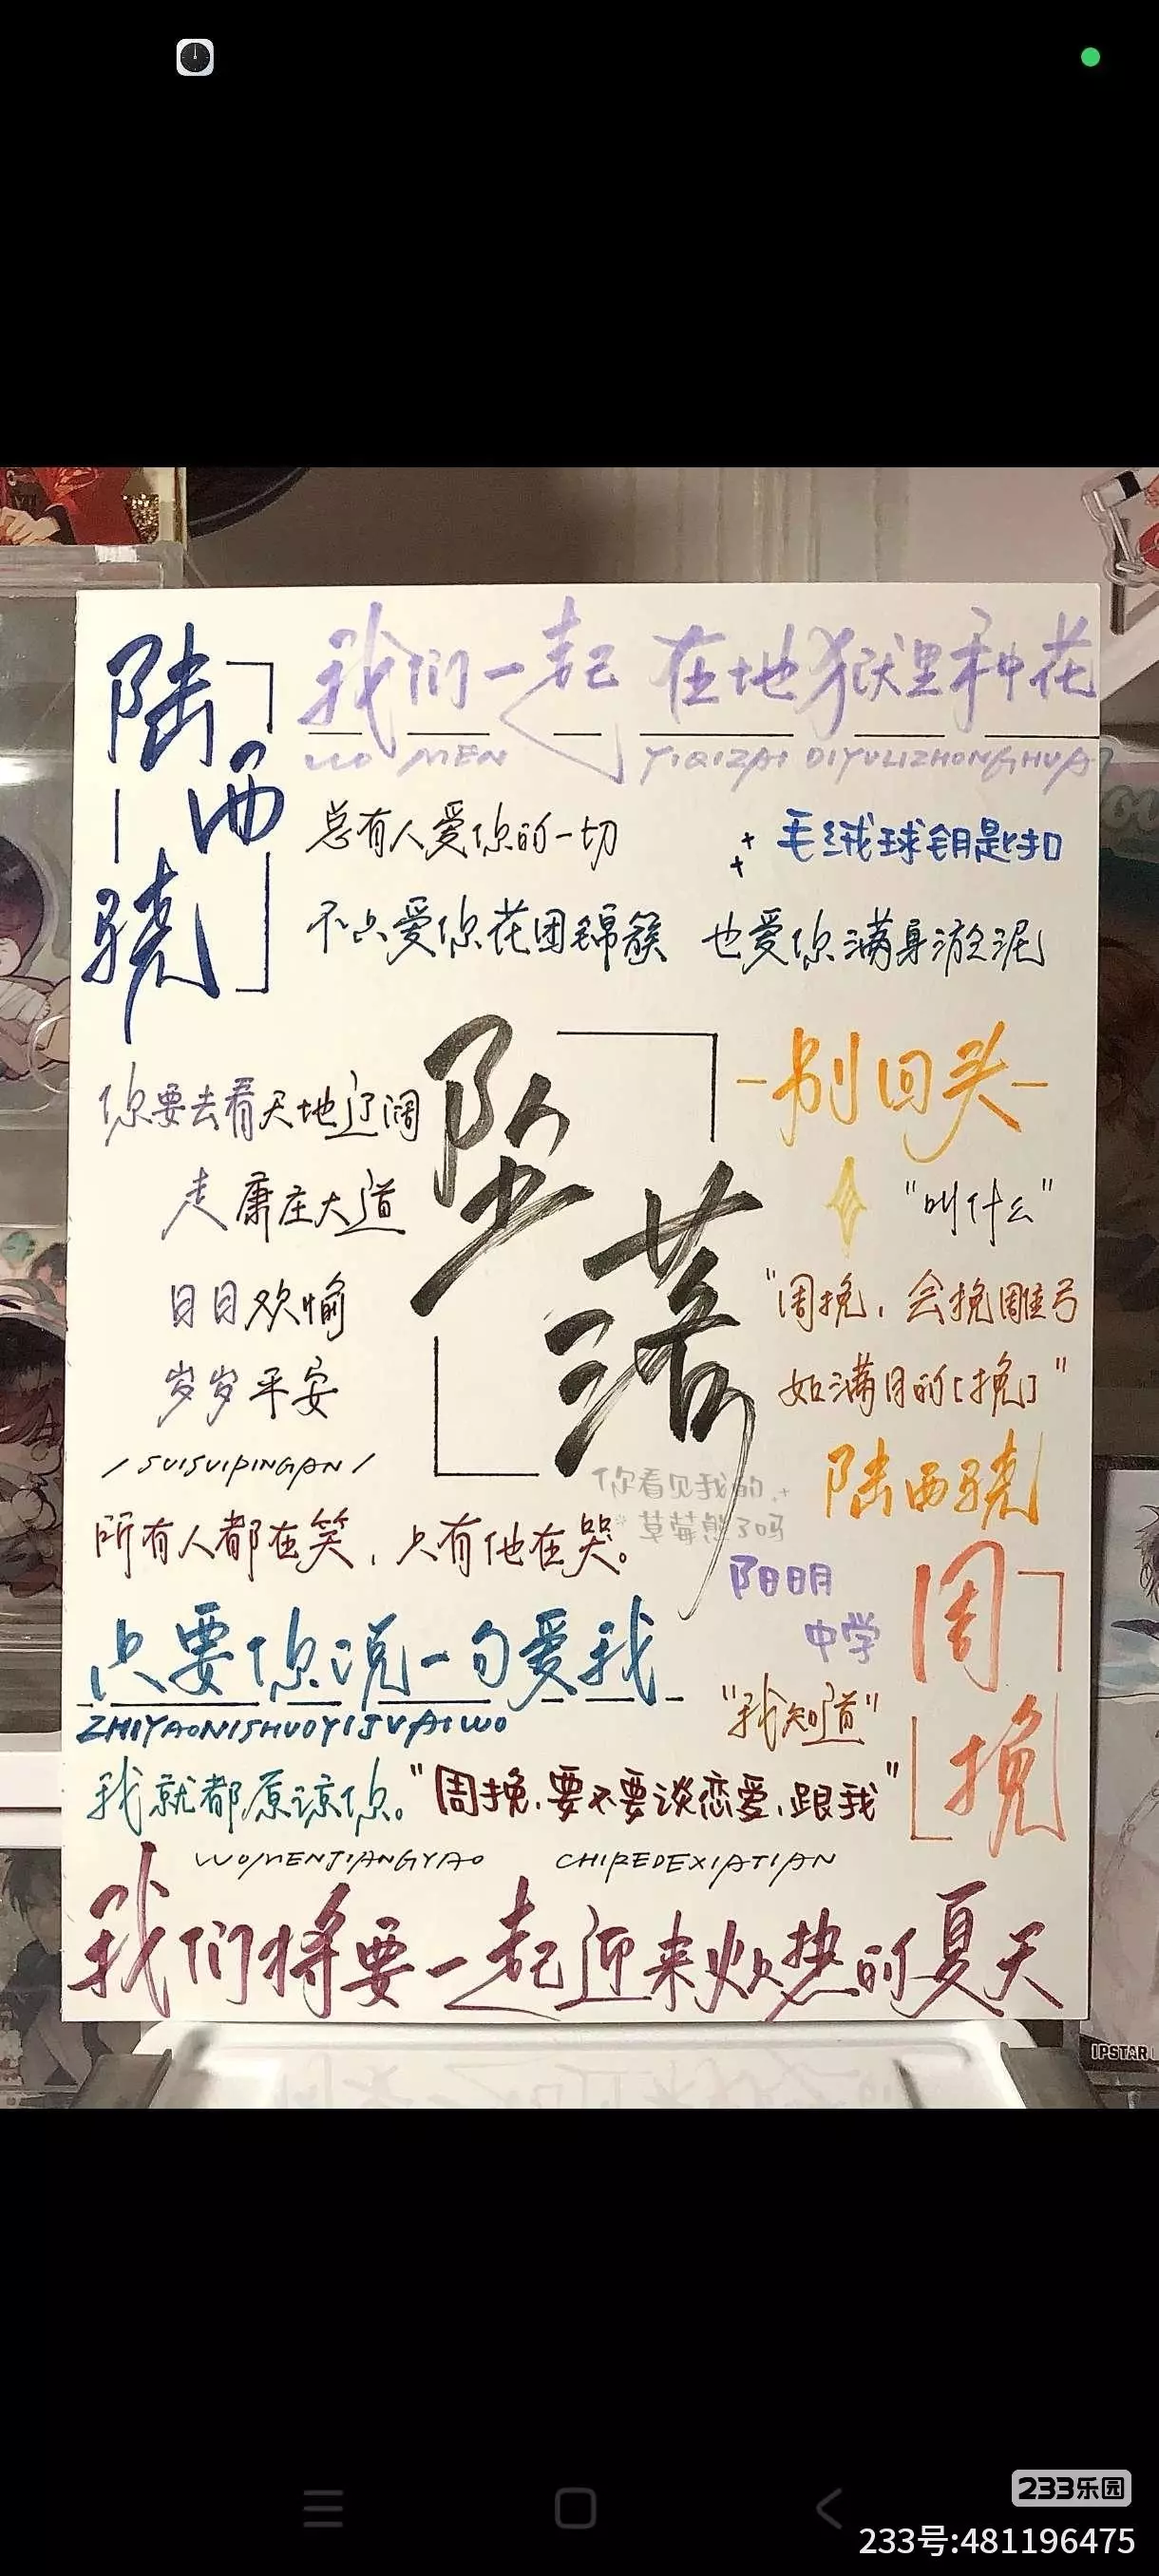 陆西骁
我们一起 在地狱里种花
WO MEN YIQIZAI DIYULIZHONGHUA
总有人爱你的一切
毛绒球钥匙扣
不只爱你花团锦簇 也爱你满身淤泥
坠落
你要去看天地辽阔
走康庄大道
日日欢愉
岁岁平安
/SUISUIPINGAN/
-别回头-
"叫什么"
"周挽，会挽雕弓
如满月的[挽]"
陆西骁
你看见我的
草莓熊了吗
所有人都在笑，只有他在哭。
阳明
中学
周挽
只要你说一句爱我
ZHIYAONISHUOYIJUAIWO
"我知道"
我就都原谅你。
"周挽，要不要谈恋爱，跟我"
WOMENJIANGYAO CHIREDEXIATIAN
我们将要一起迎来炽热的夏天
IPSTAR
233乐园
233号:481196475